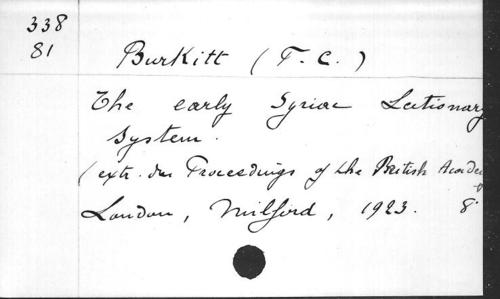 338
81
Burkitt (F. C.)
The early Syriac Lectionary
System.
(extr. des Proceedings of the British Academy
London, Milford, 1923. 8°